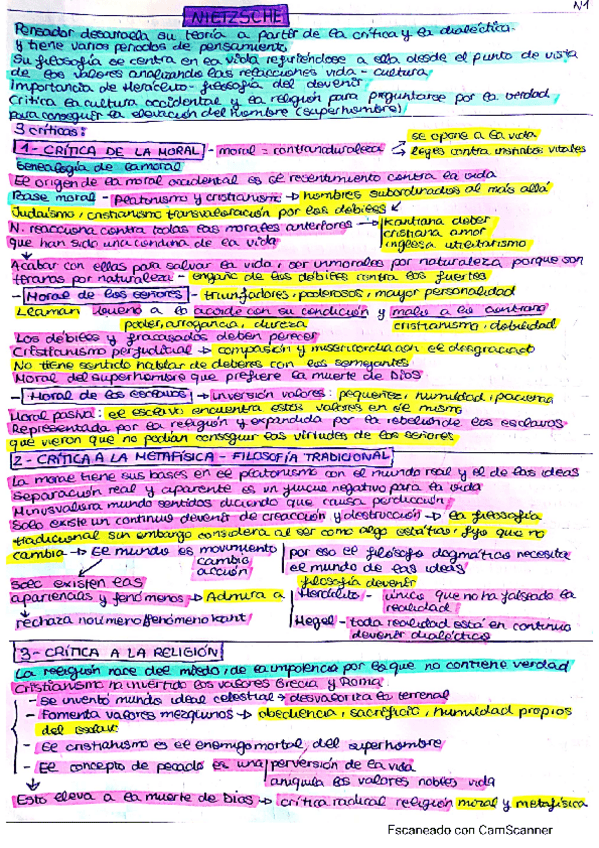 N1
NIETZSCHE
Pensador desarrolla su teoría a partir de la crítica y la dialéctica.
y tiene varios periodos de pensamiento
Su filosofía se centra en la vida refiriéndose a ella desde el punto de vista
de los valores analizando las relaciones vida - cultura
Importancia de Heráclito - filosofía del devenir
Critica la cultura occidental y la religión para preguntarse por la verdad
para conseguir la elevación del hombre (superhombre)
3 críticas:
1 - CRÍTICA DE LA MORAL - moral = contranaturaleza → se opone a la vida
→ leyes contra instintos vitales
Genealogía de la moral
El origen de la moral occidental es el resentimiento contra la vida
Base moral - Platonismo y cristianismo → hombres subordinados al más allá
Judaísmo, cristianismo transvaloración por los débiles
N. reacciona contra todas las morales anteriores → Kantiana deber
que han sido una condena de la vida
cristiana amor
inglesa utilitarismo
Acabar con ellas para salvar la vida, ser inmorales por naturaleza porque son
por naturaleza - engaño de los débiles contra los fuertes
- Moral de los señores - triunfadores, poderosos, mayor personalidad
Llaman bueno a lo acorde con su condición y malo a lo contrario
poder, arrogancia, dureza
cristianismo, debilidad
Los débiles y fracasados deben perecer
Cristianismo perjudicial → compasión y misericordia con el desgraciado
No tiene sentido hablar de deberes con los semejantes
Moral del superhombre que prefiere la muerte de Dios
- Moral de los esclavos → inversión valores: pequeñez, humildad, paciencia
Moral pasiva: el esclavo encuentra estos valores en sí mismo
Representada por la religión y expandida por la rebelión de los esclavos
que vieron que no podían conseguir las virtudes de los señores
2 - CRÍTICA A LA METAFÍSICA - FILOSOFÍA TRADICIONAL
La moral tiene sus bases en el platonismo con el mundo real y el de las ideas
Separación real y aparente es un juicio negativo para la vida
Minusvalora mundo sentidos diciendo que causa perdición
Solo existe un continuo devenir de creación y destrucción → la filosofía
tradicional sin embargo considera al ser como algo estático, fijo que no
cambia → El mundo es movimiento
cambio
acción
por eso el filósofo dogmático necesita
el mundo de las ideas
filosofía devenir
Solo existen las
apariencias y fenómenos → Admira a
Heráclito - único que no ha falseado la
realidad
rechaza noúmeno/fenómeno Kant
Hegel - toda realidad está en continuo
devenir dialéctico
3 - CRÍTICA A LA RELIGIÓN
La religión nace del miedo, de la impotencia por lo que no contiene verdad
Cristianismo ha invertido los valores Grecia y Roma
- se inventó mundo ideal celestial → desvaloriza lo terrenal
- Fomenta valores mezquinos → obediencia, sacrificio, humildad propios
del esclavo
- El cristianismo es el enemigo mortal del superhombre
- El concepto de pecado es una perversión de la vida
aniquila los valores nobles vida
Esto eleva a la muerte de Dios → crítica radical religión moral y metafísica
Escaneado con CamScanner